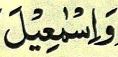 وَاِسْمٰعِيْلَ